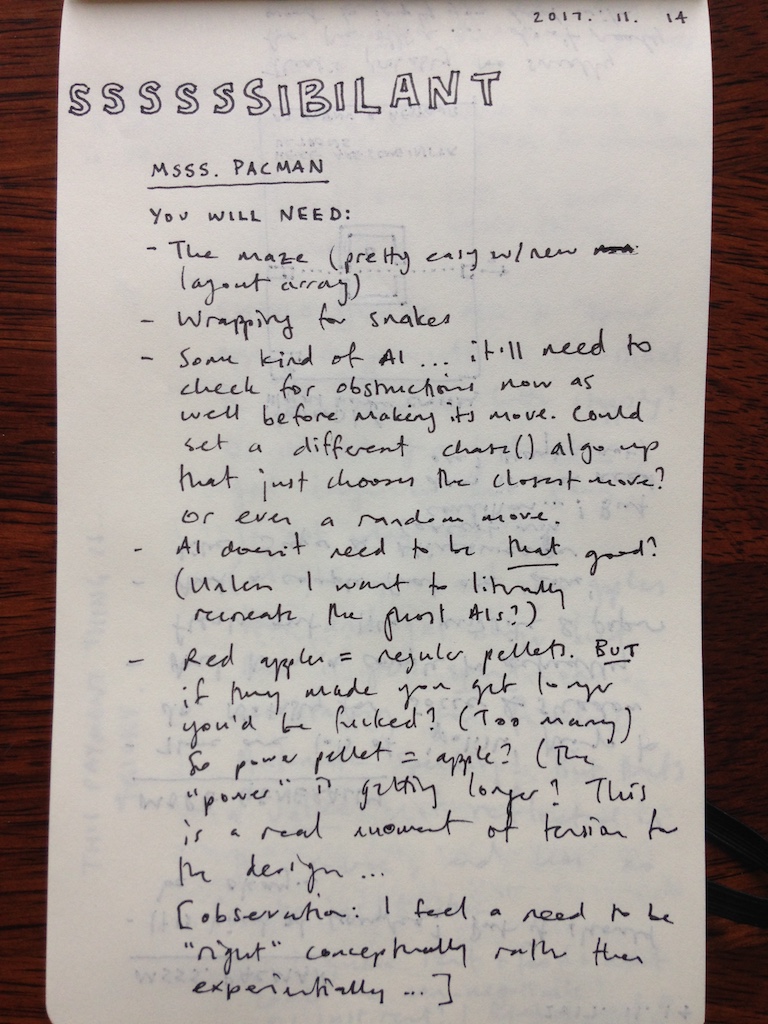 2017. 11. 14
SSSSSSIBILANT
MSSS. PACMAN
YOU WILL NEED:
- The maze (pretty easy w/ new
layout array)
- Wrapping for snakes
- Some kind of AI ... it'll need to
check for obstructions now as
well before making its move. Could
set a different chase() algo up
that just chooses the closest move?
Or even a random move.
- AI doesn't need to be that good?
(Unless I want to literally
recreate the ghost AIs?)
- Red apples = regular pellets. BUT
if they made you get longer
you'd be fucked? (Too many)
So power pellet = apple? (The
"power" is getting longer? This
is a real moment of tension for
the design ...
[observation: I feel a need to be
"right" conceptually rather than
experientially ... ]